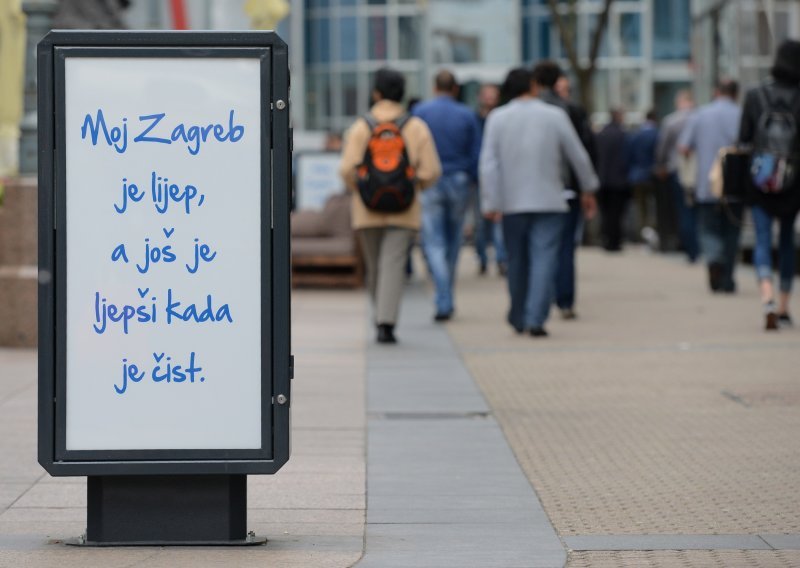 Moj Zagreb
je lijep,
a još je
ljepši kada
je čist.